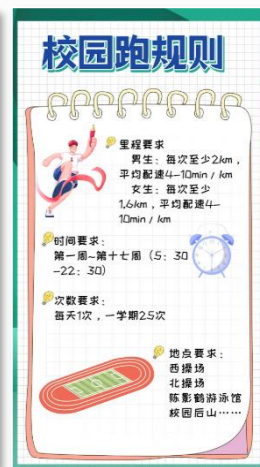 校园跑规则
里程要求
男生：每次至少2km，
平均配速4-10min / km
女生：每次至少
1,6km，平均配速4-
10min / km
时间要求：
第一周~第十七周（5：30
-22：30）
次数要求：
每天1次，一学期25次
地点要求：
西操场
北操场
陈影鹤游泳馆
校园后山……